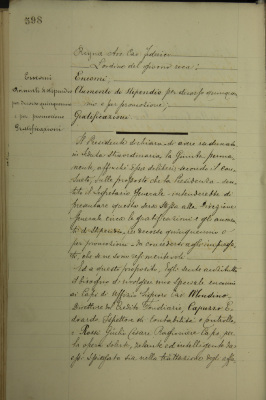 598
Bragna Avv. Cav. Federico
L'ordine del giorno reca:
Encomi
Encomi.
Aumento di stipendio
per decorso quinquennio
e per promozione
Gratificazioni
Aumento di stipendio per decorso quinquen-
nio e per promozione.
Gratificazioni
Il Presidente dichiara di avere radunata
in seduta straordinaria, la Giunta perma-
nente, affinché essa deliberi secondo il con-
sueto, sulle proposte che la Presidenza, sen-
tito il Segretario Generale, intenderebbe di
presentare questo anno stesso alla Direzione
Generale circa le gratificazioni e gli aumen-
ti di stipendio, per decorso quinquennio o
per promozione, da concedersi agli impiega-
ti, che ne sono più meritevoli.
Ed a questo proposito, Egli sente anzitutto
il bisogno di rivolgere uno speciale encomio
ai Capi di Ufficio Signori Cav. Mondino,
Direttore del Credito Fondiario, Capuzzo E-
doardo Ispettore di Contabilità e Controllo,
e Rossi Giulio Cesare Ragioniere Capo, per
la opera solerte, zelante ed intelligente da
essi spiegata sia nella trattazione degli affa-